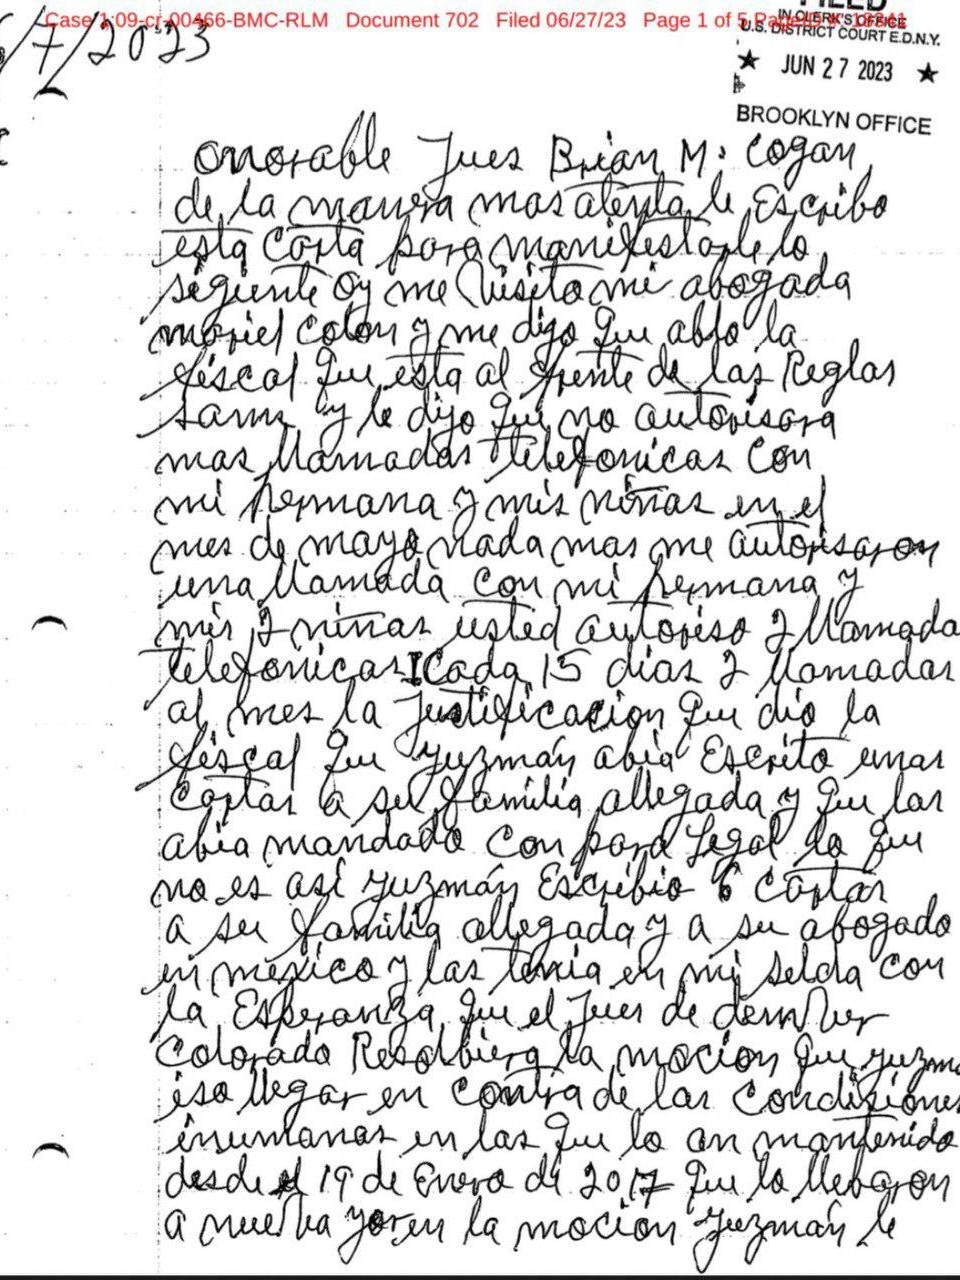 Case 1:09-cr-00466-BMC-RLM Document 702 Filed 06/27/23 Page 1 of 5 PageID #:
FILED
IN CLERK'S OFFICE
U.S. DISTRICT COURT E.D.N.Y.
/7/2023
★ JUN 27 2023 ★
BROOKLYN OFFICE
onorable Jues Brian M. Cogan,
de la manera mas atenta le Escribo
esta carta para manifestarle lo
sigiente oy me visito mi abogada
mariel colon y me dijo que ablo la
fiscal que esta al frente de las Reglas
sam y le dijo que no autorisara
mas llamadas telefonicas con
mi hermana y mis niñas en el
mes de mayo nada mas me autorisaron
una llamada con mi hermana y
mis 2 niñas usted autoriso 2 llamada
telefonicas Cada 15 dias 2 llamadas
al mes la justificacion que dio la
fiscal que guzmán abia Escrito unas
cartas a su familia allegada y que las
abia mandado con para Legal lo que
no es así guzmán Escribio 6 cartas
a su familia allegada y a su abogado
en mexico y las tenia en mi selda con
la Esperanza que el Jues de demver
Colorado la mocion que guzma
iso llegar en contra de las condiziones
inumanas en las que lo an mantenido
desde el 19 de Enero de 2017 que lo llebaron
a nueva yor en la mocion guzmán le